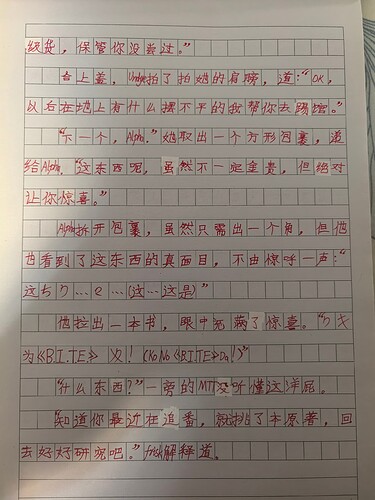 级货，保管你没尝过。”
台上盖，Ump拍了拍她的肩膀，道：“OK，
以后在地上有什么摆不平的我帮你去踢馆。”
“下一个，Alpha.”她取出一个方形包裹，递
给Alpha，“这东西呢，虽然不一定金贵，但绝对
让你惊喜。”
Alpha拆开包裹，虽然只露出一个角，但他
也看到了这东西的真面目，不由惊呼一声：“
这ちり…e…(这…这是)”
他拉出一本书，眼中充满了惊喜。“
为《B.I.TE》义！(KoNo《BITE》Da!)”
“什么东西？”一旁的MTT没听懂这洋屁。
“知道你最近在追番，就挑了本原著，回
去好好研究吧。”frisk解释道。